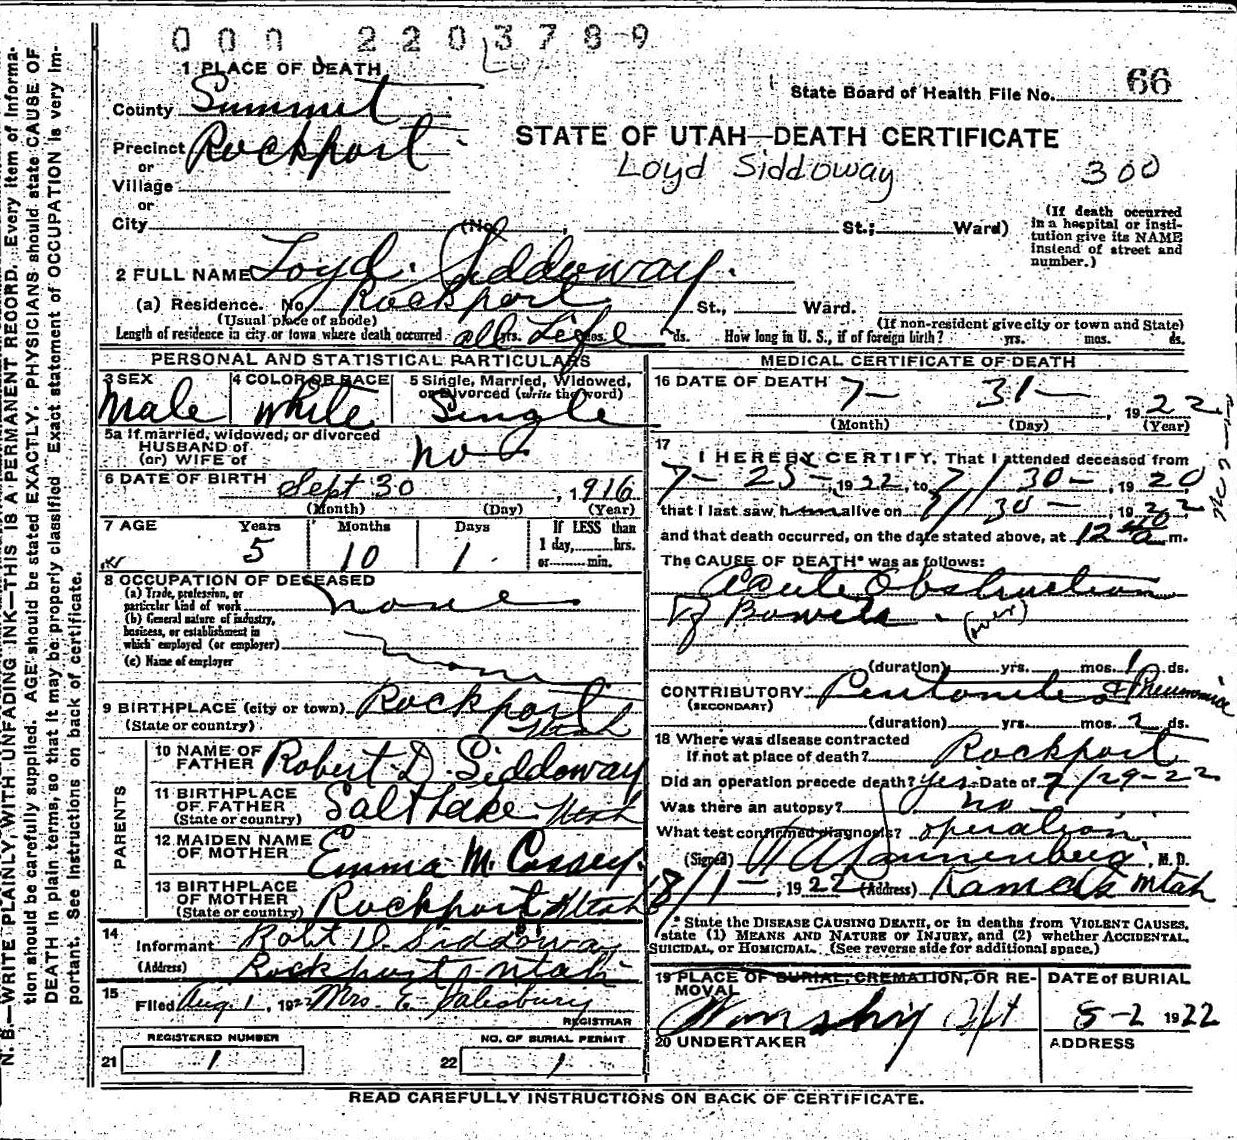 000 2203789
1 PLACE OF DEATH
County Summit
State Board of Health File No. 66
Precinct Rockport
or
Village
or
STATE OF UTAH—DEATH CERTIFICATE
Loyd Siddoway
300
City (No. , St.; Ward)
(If death occurred in a hospital or institution give its NAME instead of street and number.)
2 FULL NAME Loyd Siddoway.
(a) Residence. No. Rockport St., Ward.
(Usual place of abode) (If non-resident give city or town and State)
Length of residence in city or town where death occurred all yrs. Life mos. ds. How long in U. S., if of foreign birth? yrs. mos. ds.
PERSONAL AND STATISTICAL PARTICULARS
3 SEX Male
4 COLOR OR RACE White
5 Single, Married, Widowed, or Divorced (write the word) Single
5a If married, widowed, or divorced
HUSBAND of
(or) WIFE of no
6 DATE OF BIRTH Sept 30, 1916
(Month) (Day) (Year)
7 AGE Years Months Days If LESS than
5 10 1 1 day, hrs.
or min.
8 OCCUPATION OF DECEASED
(a) Trade, profession, or
particular kind of work none
(b) General nature of industry,
business, or establishment in
which employed (or employer)
(c) Name of employer
9 BIRTHPLACE (city or town) Rockport
(State or country) Utah
PARENTS
10 NAME OF FATHER Robert D. Siddoway
11 BIRTHPLACE OF FATHER (State or country) Salt Lake Utah
12 MAIDEN NAME OF MOTHER Emma M.
13 BIRTHPLACE OF MOTHER (State or country) Rockport Utah
14
Informant Robt D. Siddoway
(Address) Rockport Utah
15
Filed Aug. 1, 1922 Mrs. E. Salesbury
REGISTRAR
REGISTERED NUMBER NO. OF BURIAL PERMIT
21 1 22 1
MEDICAL CERTIFICATE OF DEATH
16 DATE OF DEATH 7— 31—, 1922
(Month) (Day) (Year)
17
I HEREBY CERTIFY, That I attended deceased from
7-25-, 1922, to 7/30-, 1920
that I last saw him alive on 7/30-, 1922
and that death occurred, on the date stated above, at 12 a m.
The CAUSE OF DEATH* was as follows:
Acute Obstruction
of Bowels. (over)
(duration) yrs. mos. 1 ds.
CONTRIBUTORY Peritonitis & Pneumonia
(SECONDARY)
(duration) yrs. mos. 2 ds.
18 Where was disease contracted
if not at place of death? Rockport
Did an operation precede death? yes. Date of 7/29-22
Was there an autopsy? no
What test confirmed diagnosis? operation
(Signed) , M. D.
8/1-, 1922 (Address) Kamas Utah
* State the DISEASE CAUSING DEATH, or in deaths from VIOLENT CAUSES,
state (1) MEANS AND NATURE OF INJURY, and (2) whether ACCIDENTAL,
SUICIDAL, OR HOMICIDAL. (See reverse side for additional space.)
19 PLACE OF BURIAL, CREMATION, OR REMOVAL
DATE OF BURIAL
8-2 1922
20 UNDERTAKER
ADDRESS
READ CAREFULLY INSTRUCTIONS ON BACK OF CERTIFICATE.
N. B.—WRITE PLAINLY, WITH UNFADING INK—THIS IS A PERMANENT RECORD. Every item of information should be carefully supplied. AGE should be stated EXACTLY. PHYSICIANS should state CAUSE OF DEATH in plain terms, so that it may be properly classified. Exact statement of OCCUPATION is very important. See Instructions on back of certificate.